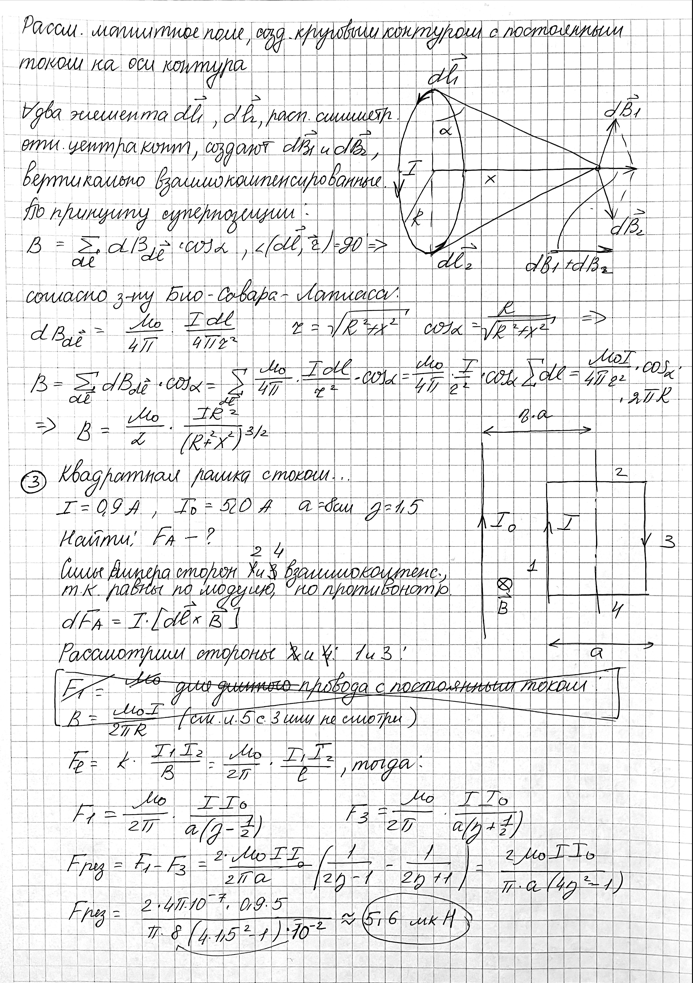 Рассм. магнитное поле, созд. круговым контуром с постоянным
током на оси контура
∀ два элемента dl⃗₁, dl⃗₂, расп. симметр.
отн. центра конт, создают dB⃗₁ и dB⃗₂,
вертикально взаимокомпенсированные.
По принципу суперпозиции:
B = Σ_dl dB_dl⃗ · cosα, ∠(dl⃗, r⃗) = 90° =>
dl⃗₁
α
I
R
x
dB⃗₁
dB⃗₂
dl⃗₂
dB⃗₁ + dB⃗₂
согласно з-ну Био-Савара-Лапласа:
dB_dl⃗ = μ₀/4π · I dl/4πr² r = √(R²+x²) cosα = R/√(R²+x²) =>
B = Σ_dl⃗ dB_dl⃗ · cosα = Σ_dl⃗ μ₀/4π · I dl/r² · cosα = μ₀/4π · I/r² · cosα Σdl = μ₀I/4πr² · cosα ·
· 2πR
=> B = μ₀/2 · IR²/(R²+x²)^3/2
③ Квадратная рамка с током...
I = 0,9 А, I₀ = 5,0 А a = 8см η = 1,5
Найти: F_A - ?
2 4
Силы Ампера сторон и взаимокомпенс.,
т.к. равны по модулю, но противонапр.
dF⃗_A = I · [dl⃗ × B⃗]
Рассмотрим стороны 1 и 3:
F₁ = μ₀ для длинного провода с постоянным током:
B = μ₀I/2πR (см. л.5 с 3 или не смотри)
η·a
I₀
I
1
2
3
4
B⃗
a
F_l = k · I₁I₂/B = μ₀/2π · I₁I₂/l, тогда:
F₁ = μ₀/2π · II₀/a(η-1/2) F₃ = μ₀/2π · II₀/a(η+1/2)
Fрез = F₁ - F₃ = 2·μ₀II₀/2πa (1/2η-1 - 1/2η+1) = 2μ₀II₀/π·a(4η²-1)
Fрез = 2·4π·10⁻⁷·0,9·5/π·8(4·1,5²-1)·10⁻² ≈ 5,6 мкН